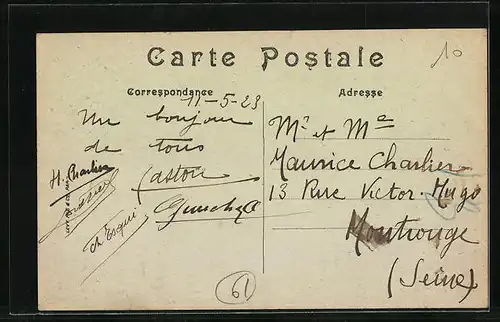 Carte Postale
10
Correspondance
Adresse
11-5-23
Un bonjour
de tous
H. Charlier
Gaston
Mr et Me
Maurice Charlier
13 Rue Victor Hugo
Montrouge
(Seine)
61